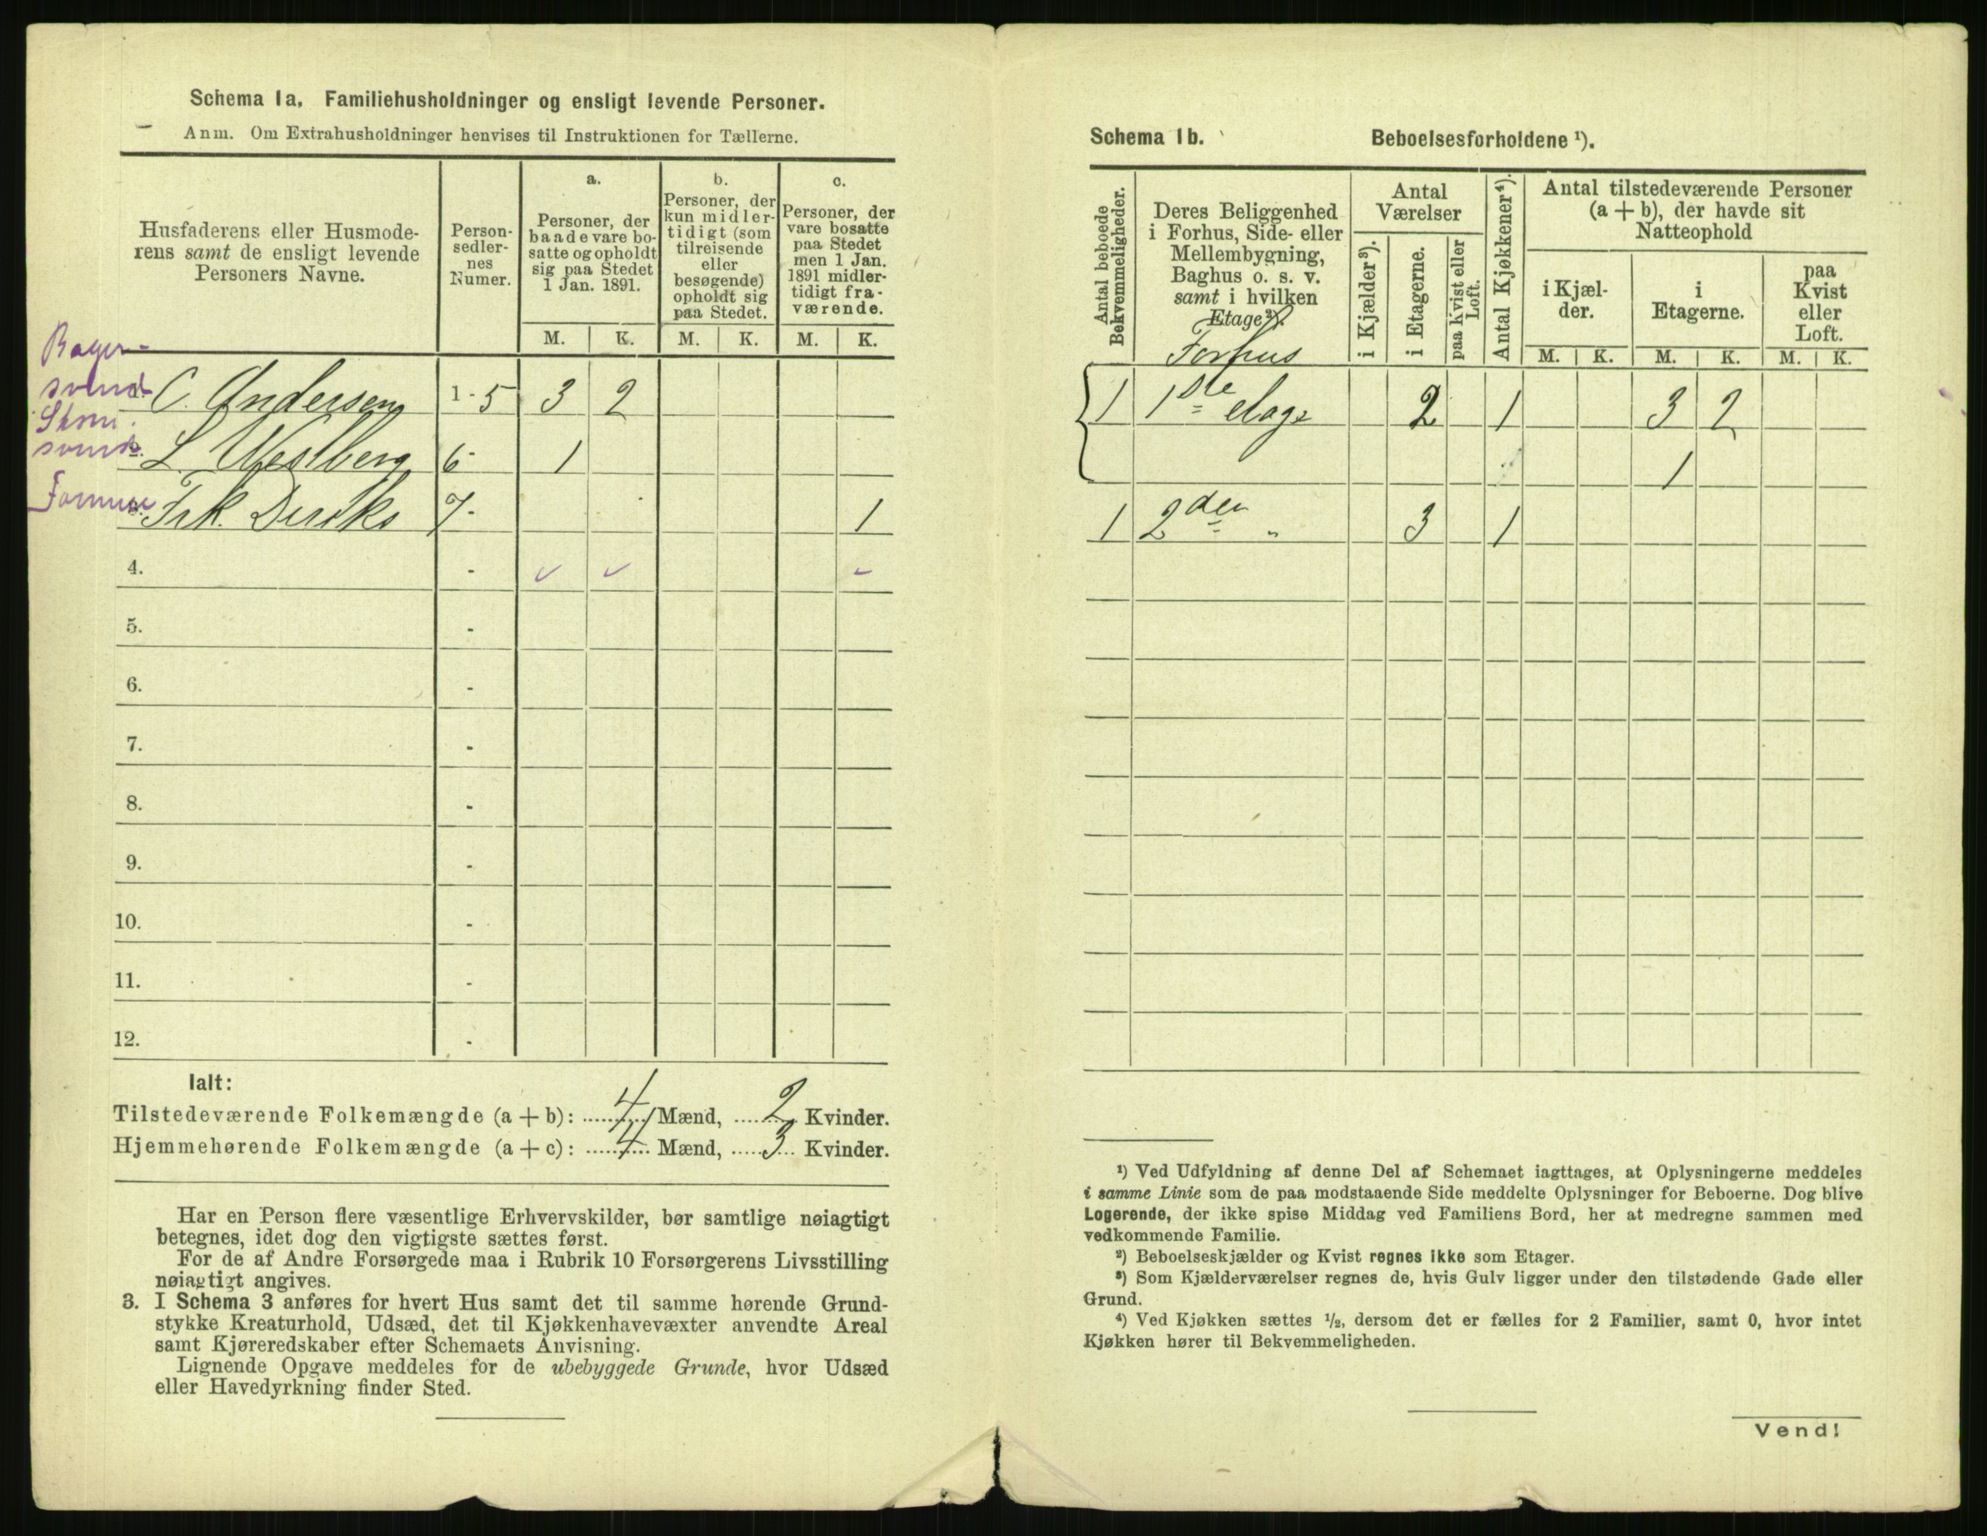 Schema 1a. Familiehusholdninger og ensligt levende Personer.
Anm. Om Extrahusholdninger henvises til Instruktionen for Tællerne.
Husfaderens eller Husmode-
rens samt de ensligt levende
Personers Navne.
Person-
sedler-
nes
Numer.
a.
Personer, der
baade vare bo-
satte og opholdt
sig paa Stedet
1 Jan. 1891.
b.
Personer, der
kun midler-
tidigt (som
tilreisende
eller
besøgende)
opholdt sig
paa Stedet.
c.
Personer, der
vare bosatte
paa Stedet
men 1 Jan.
1891 midler-
tidigt fra-
værende.
M. K. M. K. M. K.
Bager-
svend
C. Andersen 1-5 3 2
Skom.
svend
L. Westberg 6- 1
Formue
Frk. Diriks 7- 1
4. -
5. -
6. -
7. -
8. -
9. -
10. -
11. -
12. -
Ialt:
Tilstedeværende Folkemængde (a + b): 4 Mænd, 2 Kvinder.
Hjemmehørende Folkemængde (a + c): 4 Mænd, 3 Kvinder.
Har en Person flere væsentlige Erhvervskilder, bør samtlige nøiagtigt
betegnes, idet dog den vigtigste sættes først.
For de af Andre Forsørgede maa i Rubrik 10 Forsørgerens Livsstilling
nøiagtigt angives.
3. I Schema 3 anføres for hvert Hus samt det til samme hørende Grund-
stykke Kreaturhold, Udsæd, det til Kjøkkenhavevæxter anvendte Areal
samt Kjøreredskaber efter Schemaets Anvisning.
Lignende Opgave meddeles for de ubebyggede Grunde, hvor Udsæd
eller Havedyrkning finder Sted.
Schema 1b. Beboelsesforholdene ¹).
Antal beboede
Bekvemmeligheder.
Deres Beliggenhed
i Forhus, Side- eller
Mellembygning,
Baghus o. s. v.
samt i hvilken
Etage²).
Antal
Værelser
i Kjælder³).
i Etagerne.
paa Kvist eller
Loft.
Antal Kjøkkener⁴).
Antal tilstedeværende Personer
(a + b), der havde sit
Natteophold
i Kjæl-
der.
i
Etagerne.
paa
Kvist
eller
Loft.
M. K. M. K. M. K.
Forhus
1 1ste etage 2 1 3 2
1
1 2den " 3 1
¹) Ved Udfyldning af denne Del af Schemaet iagttages, at Oplysningerne meddeles
i samme Linie som de paa modstaaende Side meddelte Oplysninger for Beboerne. Dog blive
Logerende, der ikke spise Middag ved Familiens Bord, her at medregne sammen med
vedkommende Familie.
²) Beboelseskjælder og Kvist regnes ikke som Etager.
³) Som Kjælderværelser regnes de, hvis Gulv ligger under den tilstødende Gade eller
Grund.
⁴) Ved Kjøkken sættes ½, dersom det er fælles for 2 Familier, samt 0, hvor intet
Kjøkken hører til Bekvemmeligheden.
Vend!